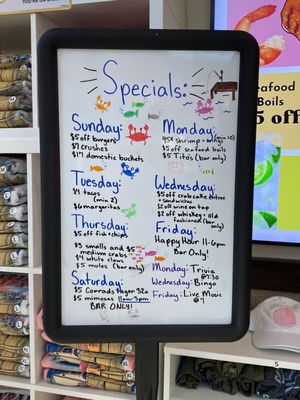 Specials:
Sunday:
$5 off burgers
$7 crushes
$17 domestic buckets
Monday:
95¢ shrimp + wings (min 10)
$5 off seafood boils
$5 Tito's (bar only)
Tuesday:
$4 tacos
(min 2)
$6 margaritas
Wednesday:
$5 off crab cake entree
+ sandwiches
$2 off wine on tap
$2 off whiskey + old
fashioned (bar only)
Thursday:
$5 off fish + chips
$3 smalls and $5
medium crabs
$4 white claws
$5 mules (bar only)
Friday:
Happy Hour 11-6pm
Bar Only!
Saturday:
$5 Conrads Lager 32oz
$5 mimosas 11am-3pm
BAR ONLY!
Monday: Trivia
@7:30
Wednesday: Bingo
Friday: Live Music
@7
eafood
Boils
5 off